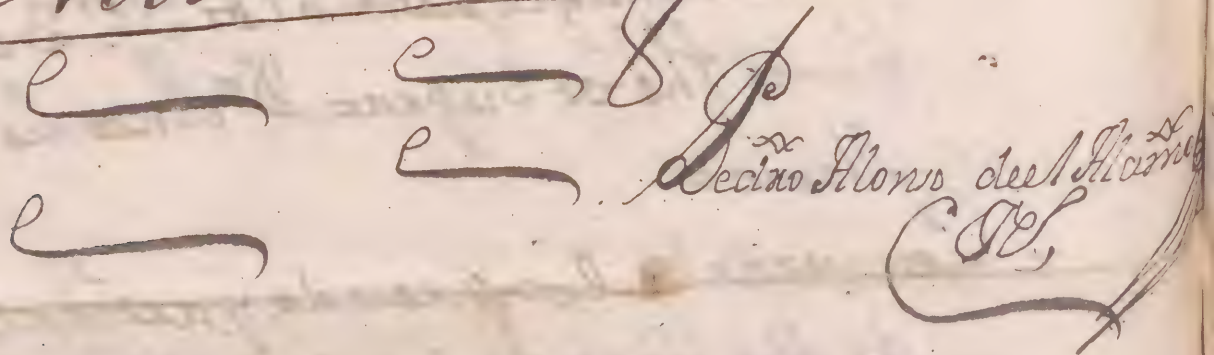 Pedro Alonso deel Alamo